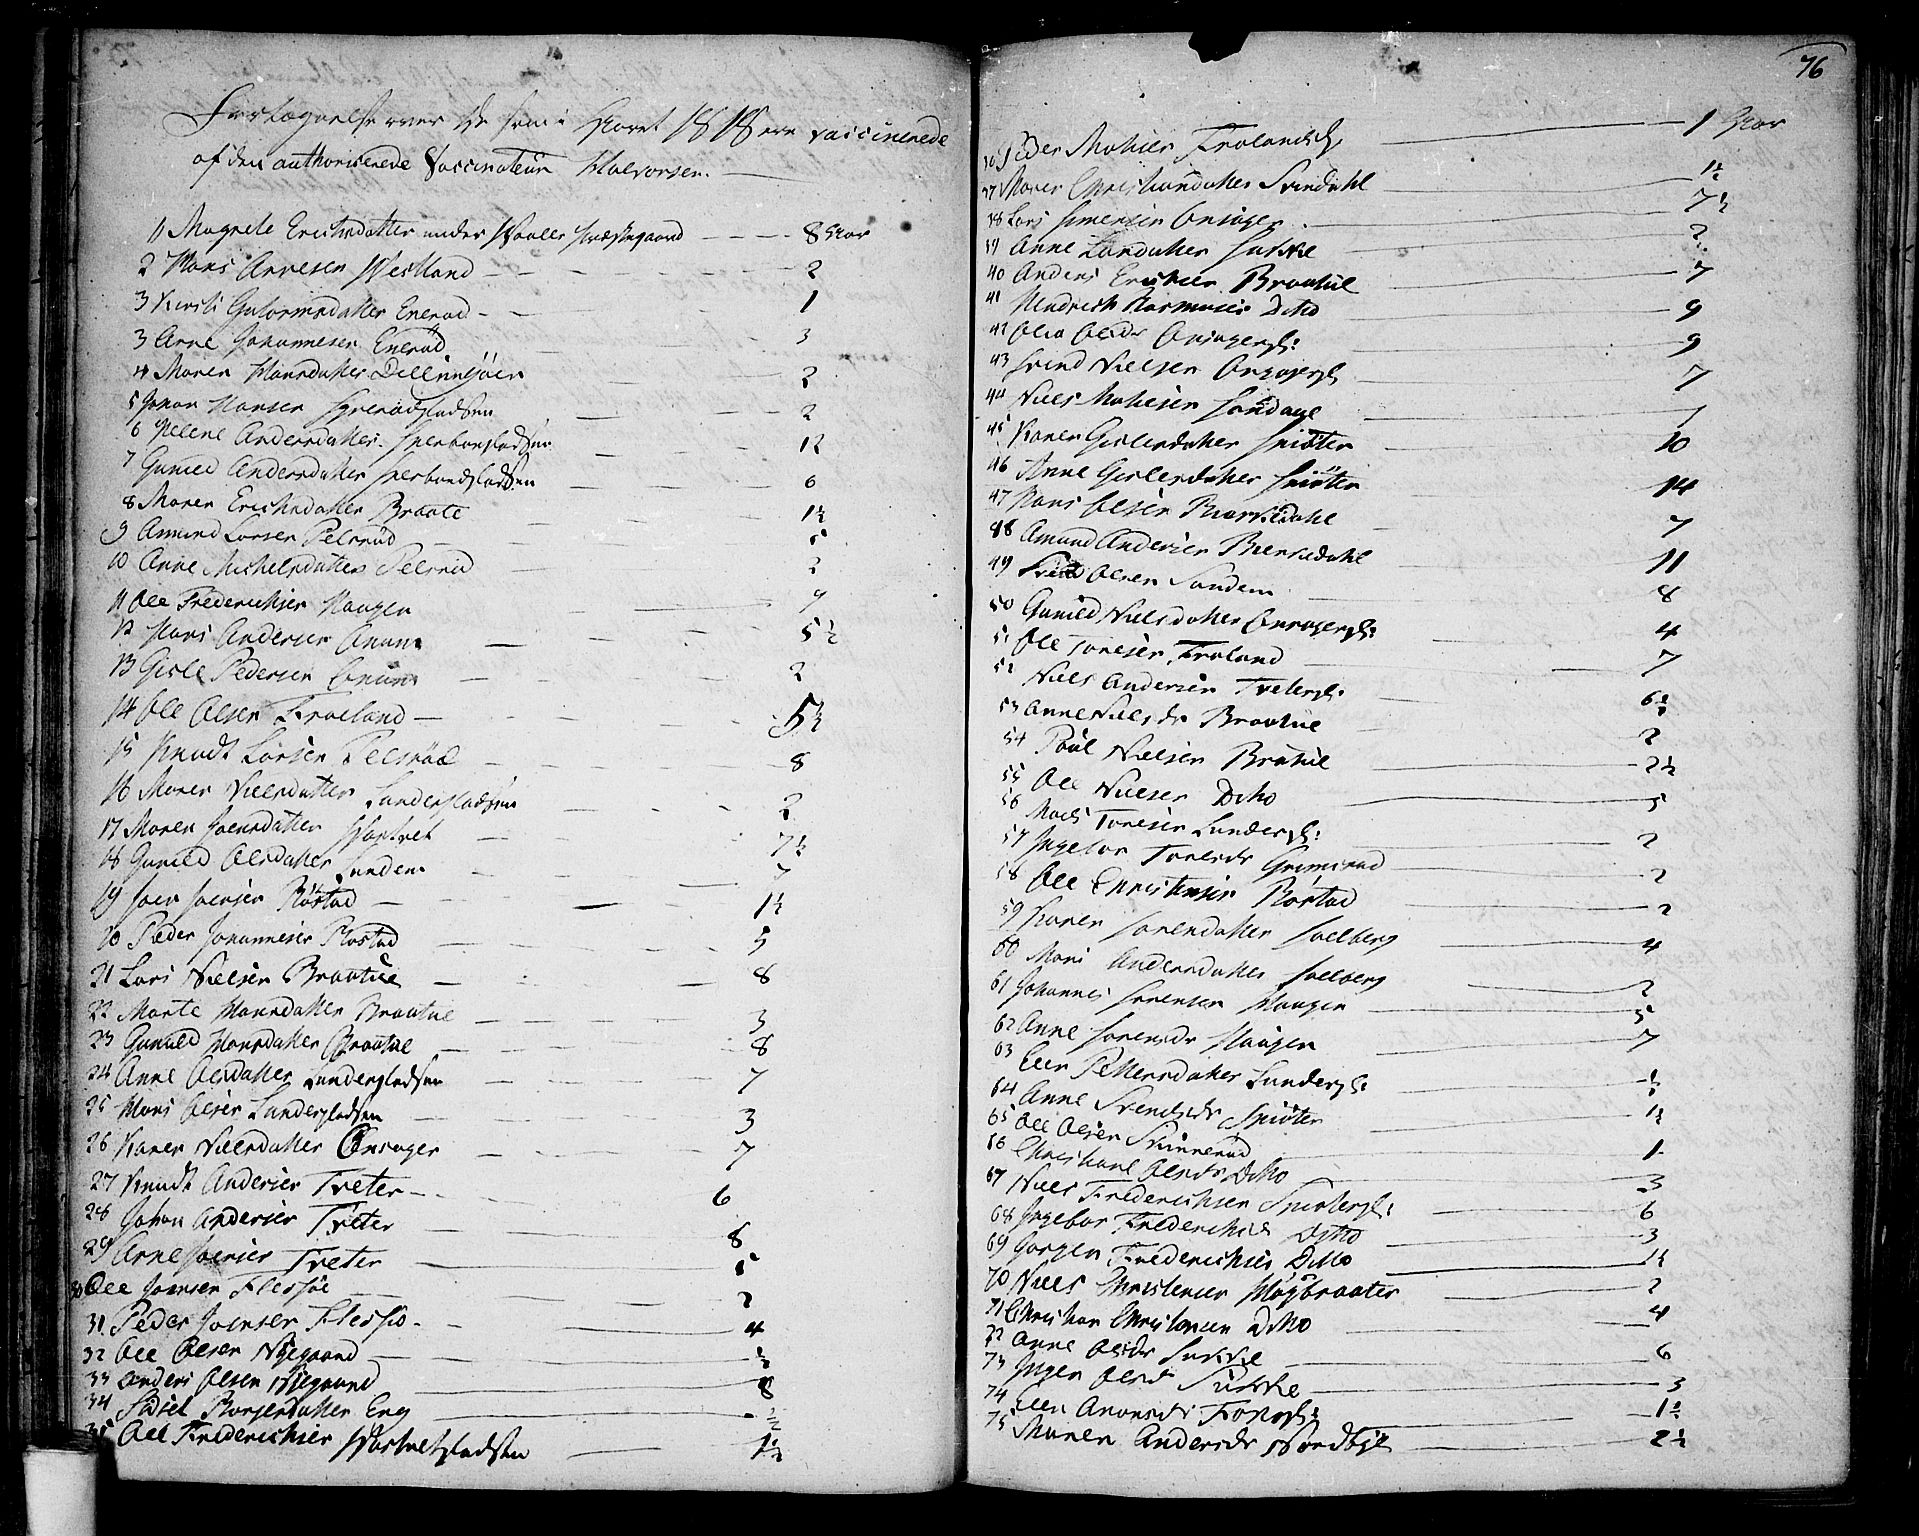 Fortegnelse over De som i Aaret 1818 ere vaccinerede
af den authoriserede Vaccinateur Halvorsen.
1 Magrete Erichsdatter under Waaler Præstegaard 8 Aar
2 Hans Arnesen Westland 2
3 Kirsti Gulormsdatter Enerød 1
3 Arne Johannesen Enerød 3
4 Maren Hansdatter 2
5 Johan Hansen 2
6 Helene Andersdatter 12
7 Gunild Andersdatter 6
8 Maren Erichsdatter Braate 1½
9 Amund Larsen Pelsrød 5
10 Anne Michelsdatter Pelsrød 2
11 Ole Frederichsen Haugen 9
12 Hans Andersen 5½
13 Gisle Pedersen 2
14 Ole Olsen Froeland 5½
15 Knudt Larsen Pelsrød 8
16 Maren Nielsdatter Lunderpladsen 2
17 Maren Joensdatter Wartvet 7½
18 Gunild Olsdatter Sundem 7
19 Joen Joensen Røstad 1½
20 Peder Johannesen Røstad 5
21 Lars Nielsen Braatue 8
22 Marte Hansdatter Braatue 3
23 Gunild Hansdatter Braatue 8
24 Anne Olsdatter Lunderpladsen 7
25 Hans Olsen Lunderpladsen 3
26 Karen Nielsdatter Onsager 7
27 Knudt Andersen Tveter 6
28 Johan Andersen Tveter 8
29 Arne Joensen Tveter 5
30 Ole Joensen Flesjøe 2
31 Peder Joensen Flesjø 4
32 Ole Olsen Nygaard ½
33 Anders Olsen Nygaard 8
34 Sidsel Borgersdatter Eng ½
35 Ole Frederichsen Wartvetpladsen 1½
76
36 Peder Mathisen Frolandspl: 1 Aar
37 Maren Christiansdatter Svindahl 1½
38 Lars Simensen Onsager 7½
39 Anne Larsdatter Sukke 2
40 Anders Erichsen Braatue 7
41 Hendrich Rasmusen Ditto 9
42 Olea Olsdr Onsagerpl: 9
43 Svend Nielsen Onsagerpl 7
44 Niels Mathisen 1
45 Karen Gislesdatter Smiøter 10
46 Anne Gislesdatter Smiøter 14
47 Hans Olsen Biørkedahl 7
48 Amund Andersen Bierkedahl 11
49 Svend Olsen Sundem 8
50 Gunild Nielsdatter Onsagerpl: 4
51 Ole Toresen Froland 7
52 Niels Andersen Tveterpl: 6½
53 Anne Nielsdr Braatue 2
54 Poul Nielsen Braatue 2½
55 Ole Nielsen Ditto 5
56 Mads Toresen Lunderpl: 2
57 Ingebor Toresdr Grimsrud 2
58 Ole Christensen Røstad 2
59 Karen Sorensdatter Solberg 4
60 Mari Andersdatter Solberg 2
61 Johannes Sorensen Haugen 5
62 Anne Sorensdr Haugen 7
63 Elen Pettersdatter Lunderpl: ½
64 Anne Svendsdr Smiøter 1½
65 Ole Olsen Skinnerød 1
66 Christiane Olsdr Ditto 3
67 Niels Frederichsen Smiøterpl: 6
68 Ingebor Frederichsdr Ditto 3
69 Jørgen Frederichsen Ditto 1½
70 Niels Christensen Høybraater 2
71 Christian Christensen Ditto 4
72 Anne Olsdr Sukke 6
73 Inger Olsdr Sukke 3
74 Elen Aronsdr 1½
75 Maren Andersdr Nordbye 2½